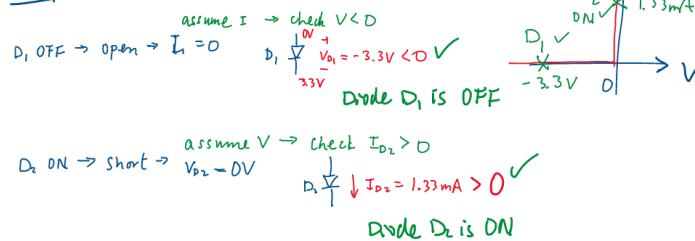 assume I → check V<0
D₁ OFF → open → I₁ = 0
0V
D₁
+
V_D1 = -3.3V <0 ✓
-
3.3V
Diode D₁ is OFF
ON ✓
1.33mA
D₁ ✓
-3.3V
0
V
assume V → check I_D2 > 0
D₂ ON → short → V_D2 = 0V
D₂
↓ I_D2 = 1.33mA > 0 ✓
Diode D₂ is ON